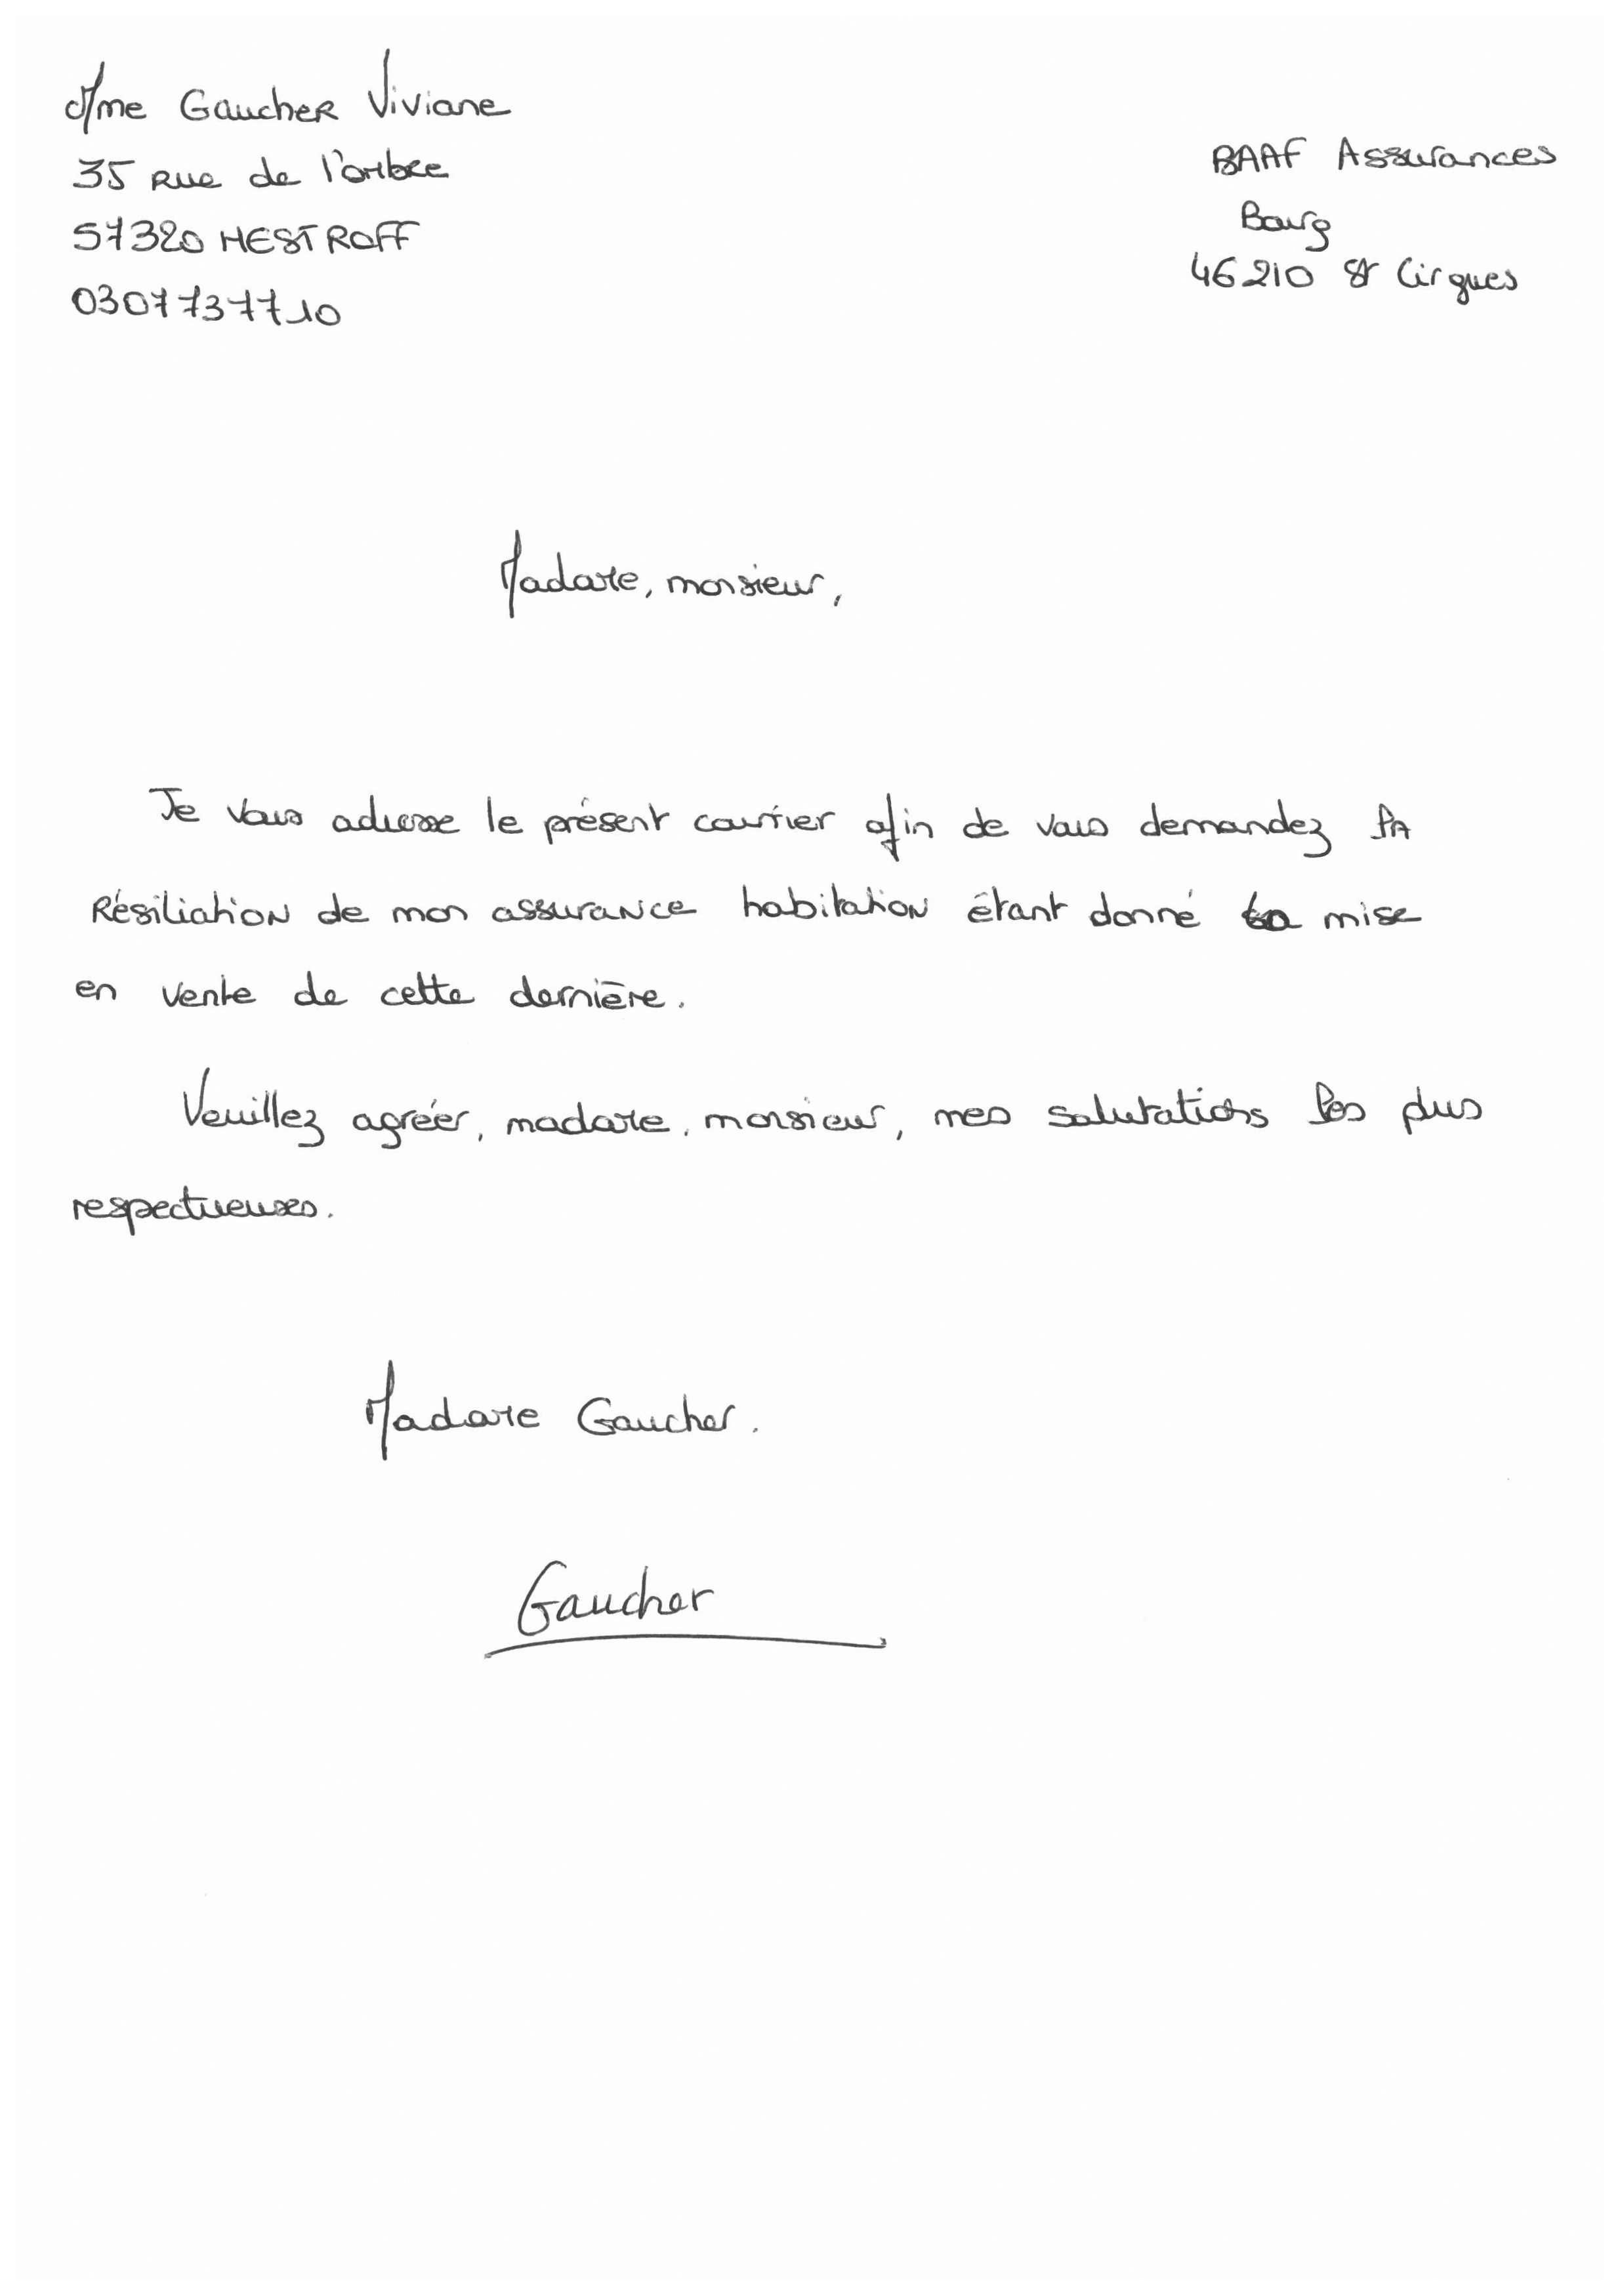 Mme Gaucher Viviane
35 rue de l'arbre
57320 HESTROFF
0307737710
BAAF Assurances
Bourg
46210 St Cirgues
Madame, monsieur,
Je vous adresse le présent courrier afin de vous demandez la
Résiliation de mon assurance habitation étant donné la mise
en vente de cette dernière.
Veuillez agréer, madame, monsieur, mes salutations les plus
respectueuses.
Madame Gaucher.
Gaucher